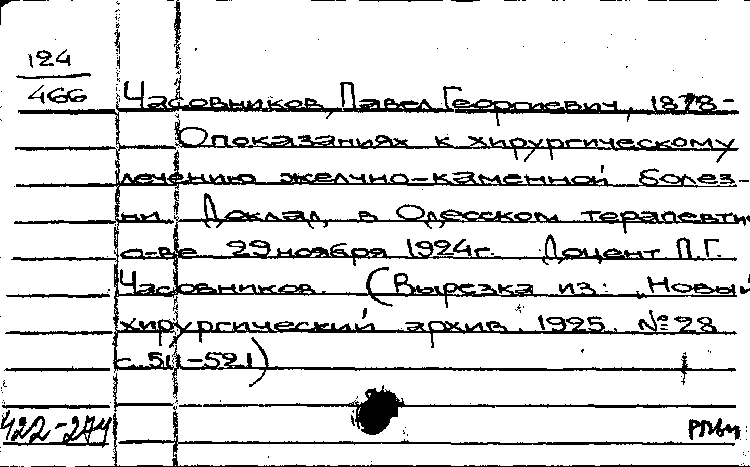 124
466
Часовников, Павел Георгиевич, 1878-
О показаниях к хирургическому
лечению желчно-каменной болез-
ни. Доклад, в Одесском терапевти
о-ве 29 ноября 1924г. Доцент П.Г.
Часовников. (Вырезка из: „Новый
хирургический архив. 1925. № 28
с. 511-521)
422-274